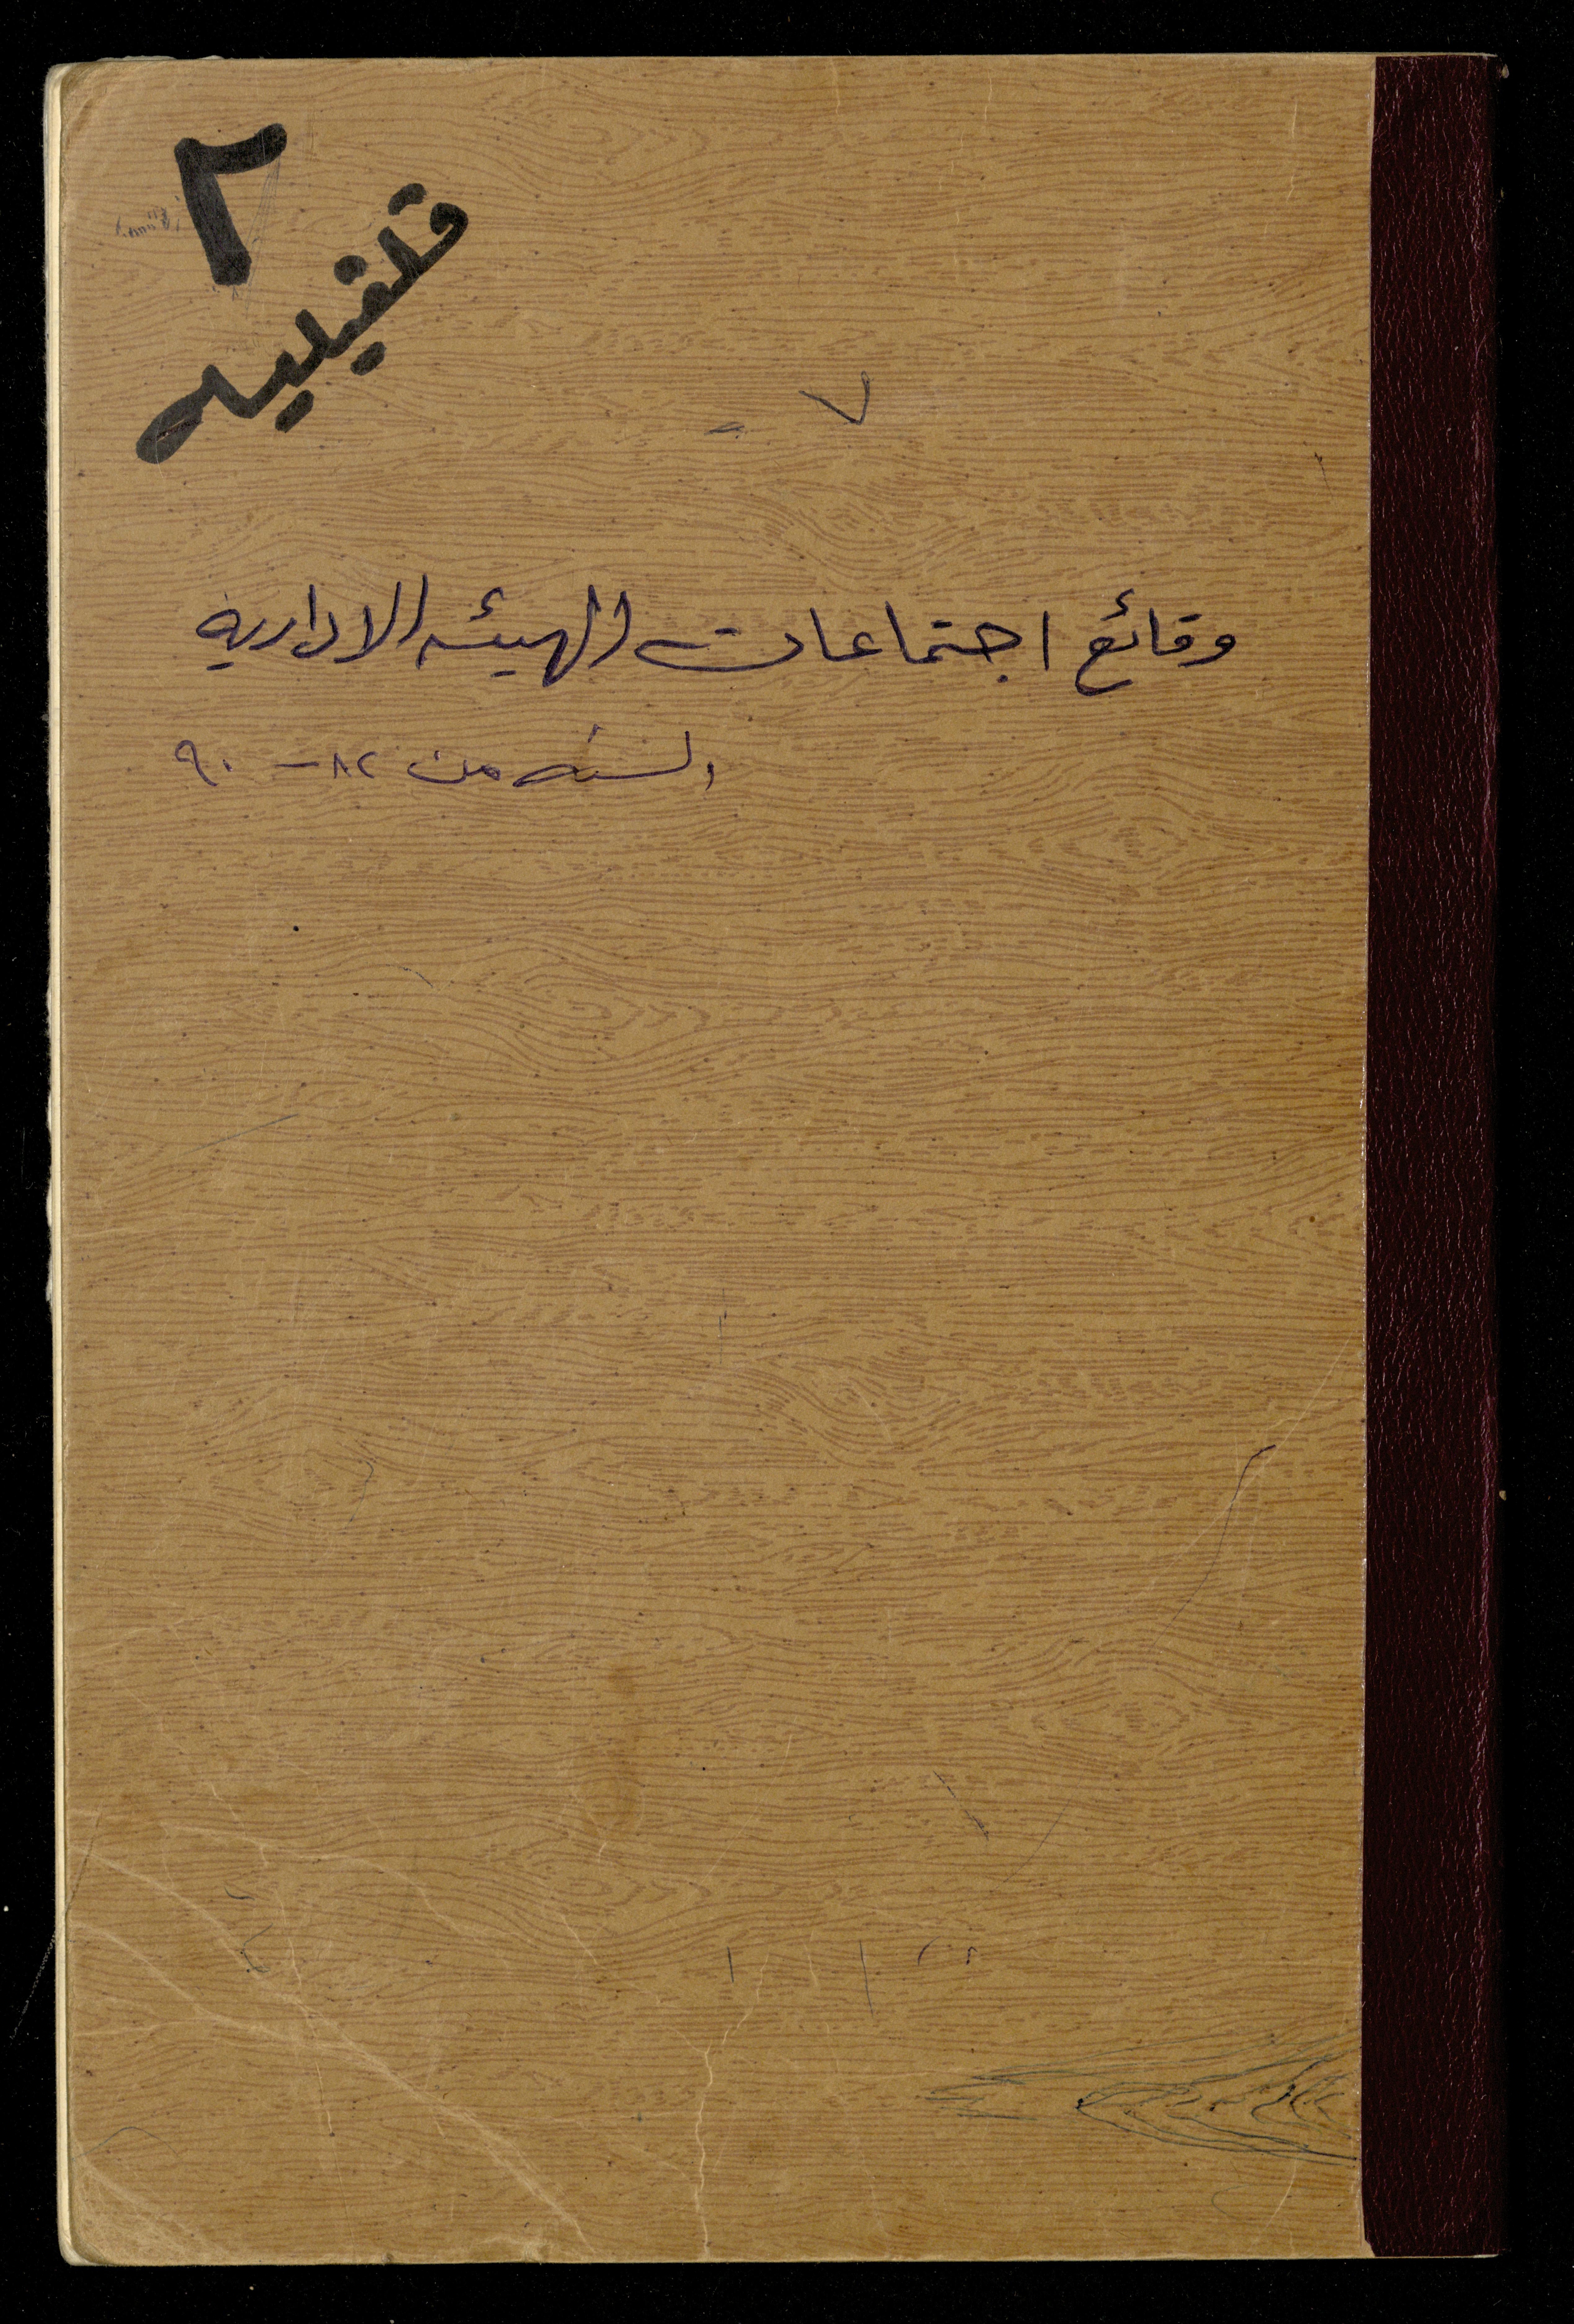 ٢
قلقيليه
٧
وقائع اجتماعات الهيئه الاداريه
السنه من ٨٢ - ٩٠